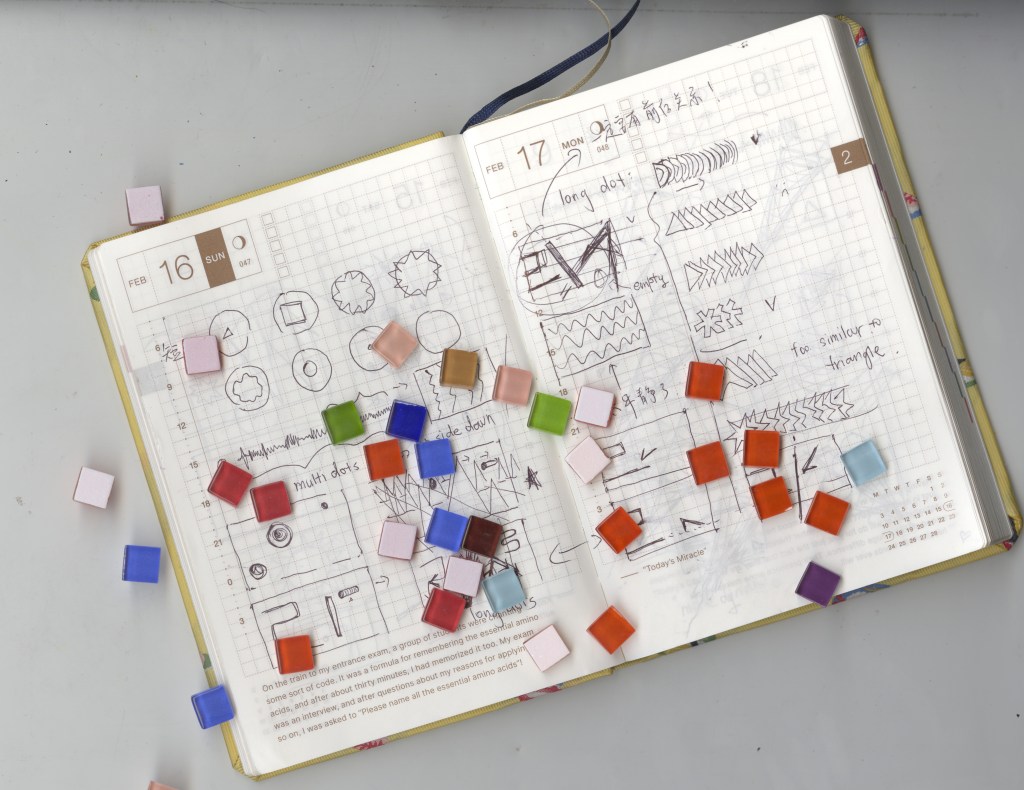 FEB 16 SUN
047
6
9
12
15
18
21
0
3
multi dots
side down
On the train to my entrance exam, a group of students were
some sort of code. It was a formula for remembering the essential amino
acids, and after about thirty minutes, I had memorized it too. My exam
was an interview, and after questions about my reasons for applying
so on, I was asked to "Please name all the essential amino acids"!
FEB 17 MON
048
2
long dot:
empty
too similar to
triangle.
6
12
15
18
21
3
"Today's Miracle"
M T W T F S S
1 2
3 4 5 6 7 8 9
10 11 12 13 14 15 16
17 18 19 20 21 22 23
24 25 26 27 28